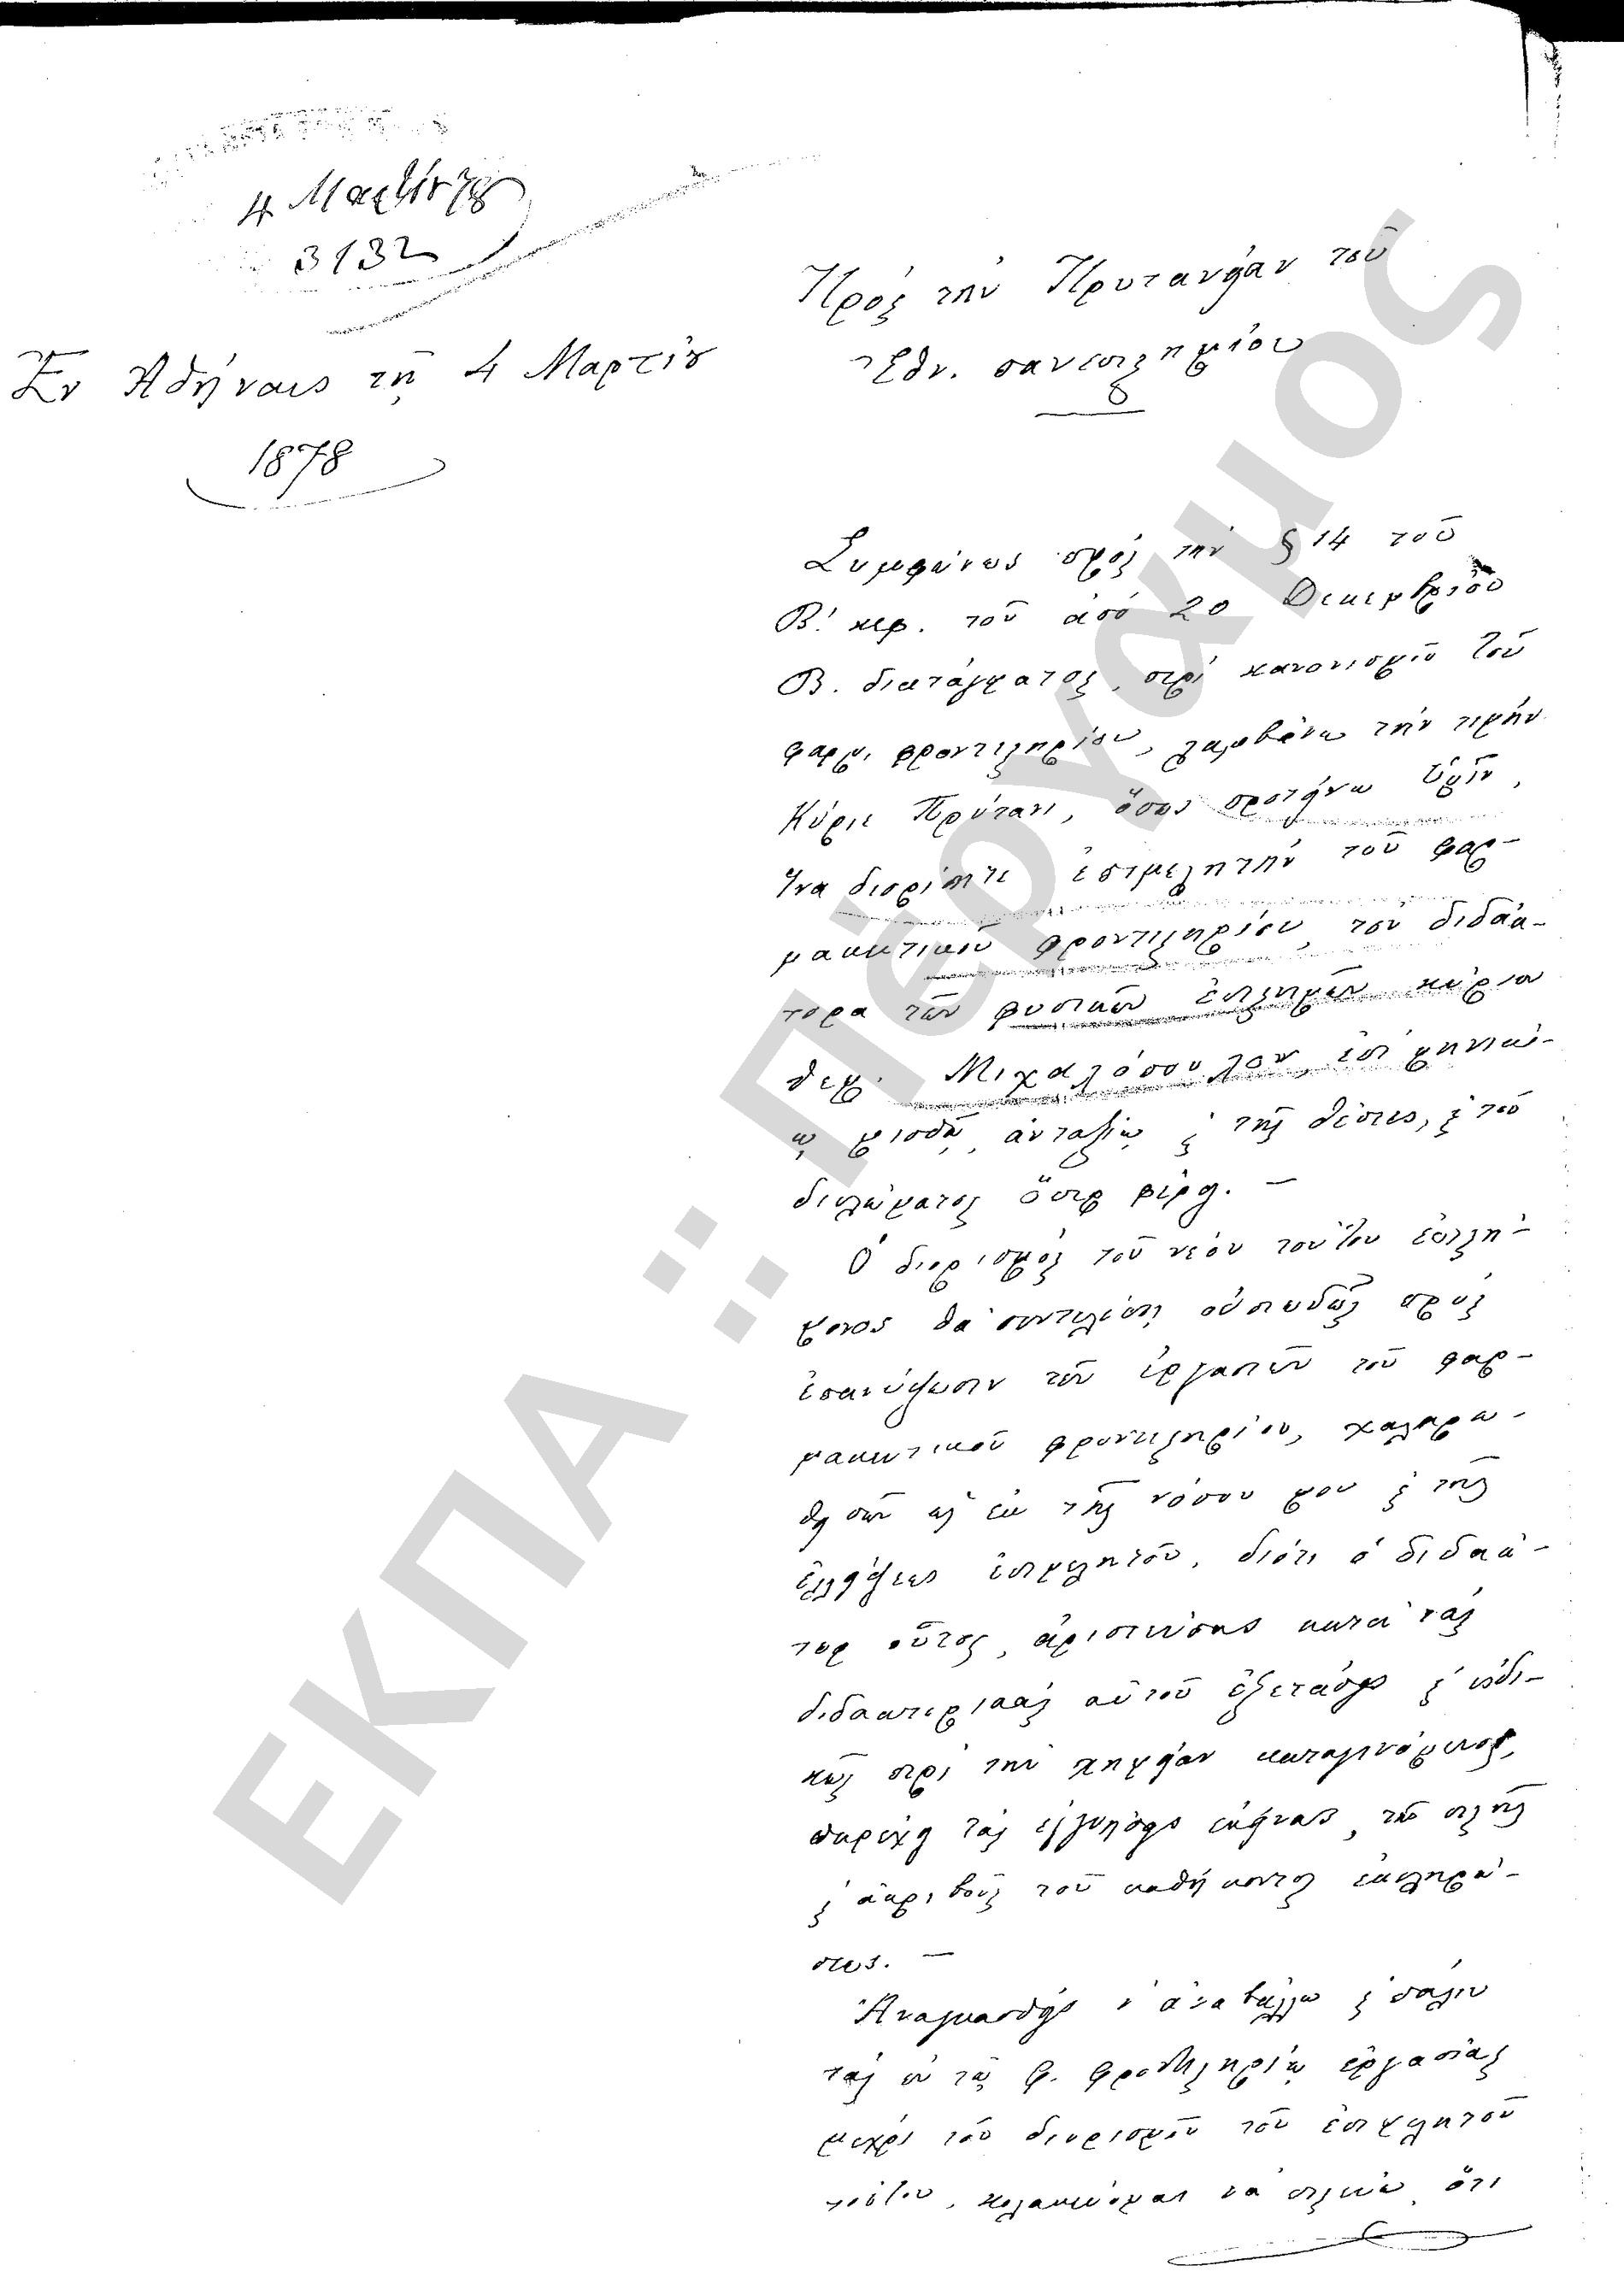 4 Μαρτίου 78
3132
Ἐν Ἀθήναις τῇ 4 Μαρτίου
1878
Πρὸς τὴν Πρυτανείαν τοῦ
Ἐθν. Πανεπιστημίου
Συμφώνως πρὸς τὴν § 14 τοῦ
Β΄. κεφ. τοῦ ἀπὸ 20 Δεκεμβρίου
Β. διατάγματος, περὶ κανονισμοῦ τοῦ
φαρμ. φροντιστηρίου, λαμβάνω τὴν τιμὴν
Κύριε Πρύτανι, ὅπως προτείνω Ὑμῖν,
ἵνα διορίσητε ἐπιμελητὴν τοῦ φαρ-
μακευτικοῦ φροντιστηρίου, τὸν διδάκ-
τορα τῶν φυσικῶν ἐπιστημῶν κύριον
Θεμ. Μιχαλόπουλον, ἐπὶ μηνιαί-
ῳ μισθῷ, ἀνταξίῳ καὶ τῆς θέσεως, καὶ τοῦ
διπλώματος ὅπερ φέρει. —
Ὁ διορισμὸς τοῦ νέου τούτου ἐπιστή-
μονος θὰ συντελέσῃ σπουδαίως πρὸς
ἐπανόρθωσιν τῶν ἐργασιῶν τοῦ φαρ-
μακευτικοῦ φροντιστηρίου, χαλαρω-
θεισῶν ὡς ἐκ τῆς νόσου μου καὶ τῆς
ἐλλείψεως ἐπιμελητοῦ, διότι ὁ διδάκ-
τωρ οὗτος, ἀριστεύσας κατὰ τὰς
διδακτορικὰς αὐτοῦ ἐξετάσεις καὶ εἰδι-
κῶς περὶ τὴν χημείαν καταγινόμενος,
παρέχει τὰς ἐγγυήσεις ἐκείνας, τῆς πιστῆς
καὶ ἀκριβοῦς τοῦ καθήκοντος ἐκπληρώ-
σεως. —
Ἀναγκασθεὶς ν' ἀναβάλλω καὶ πάλιν
τὰς ἐν τῷ φ. φροντιστηρίῳ ἐργασίας
μέχρι τοῦ διορισμοῦ τοῦ ἐπιμελητοῦ
τούτου, κολακεύομαι νὰ πιστεύω ὅτι
ΕΚΠΑ :: Πέργαμος